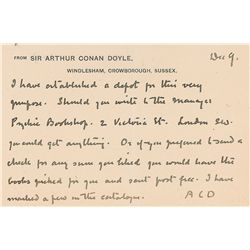 Dec 9.
FROM SIR ARTHUR CONAN DOYLE,
WINDLESHAM, CROWBOROUGH, SUSSEX.
I have established a depot for this very
purpose. Should you write to the manager
Psychic Bookshop. 2 Victoria St. London SW.
you could get anything. Or if you prepared & send a
check for any sum you liked you would have the
books picked for you and sent post free. I have
marked a few in the catalogue. A C D